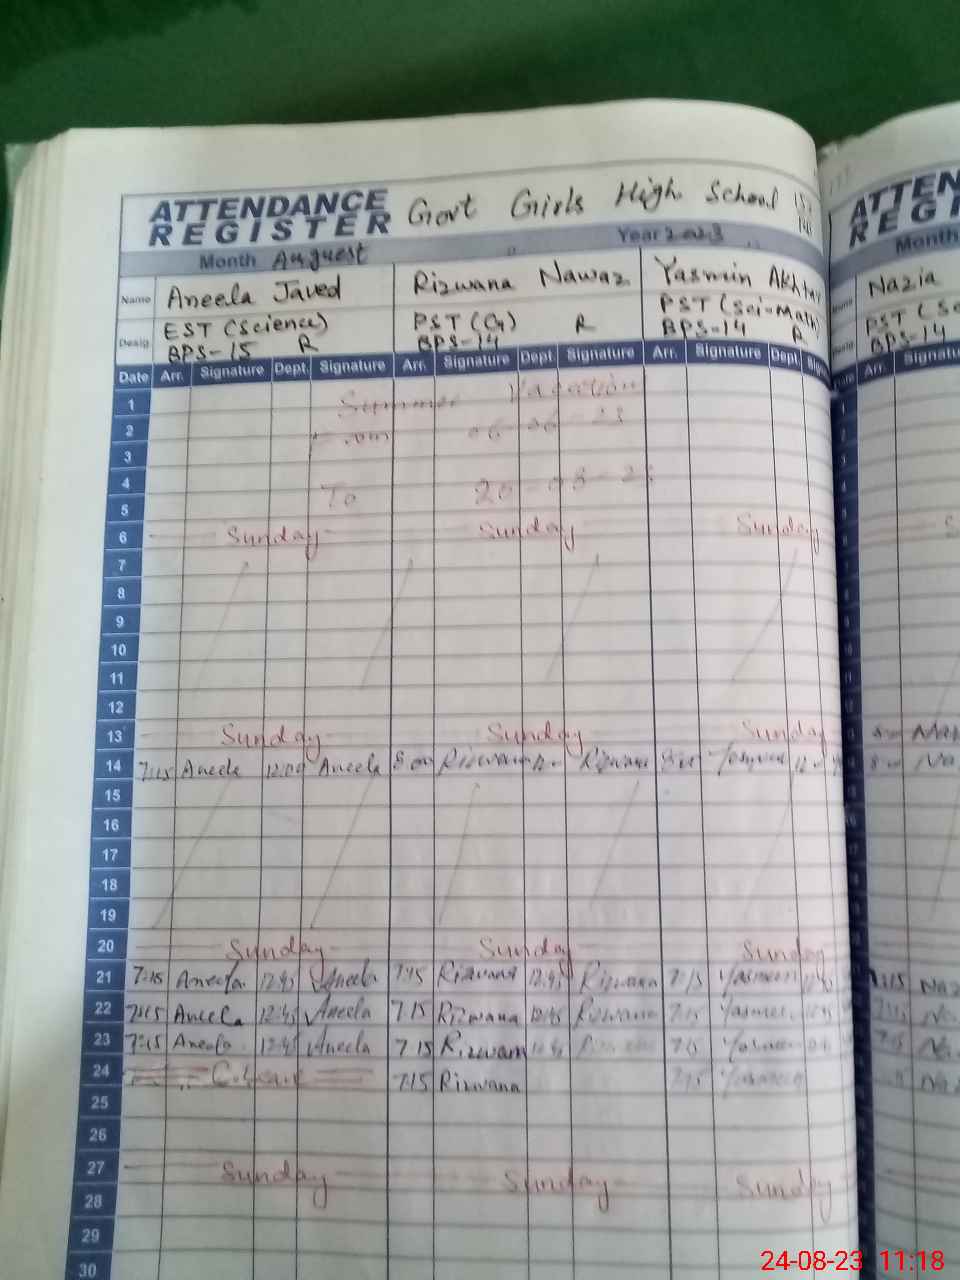 ATTENDANCE REGISTER Govt Girls High School
Month Auguest Year 2023
Name Aneela Javed Rizwana Nawaz Yasmin Akhtar
Desig. EST (Science) BPS-15 R PST ( ) BPS-14 R PST (Sci-Math) BPS-14 R
Date Arr. Signature Dept. Signature Arr. Signature Dept. Signature Arr. Signature Dept.
1 Summer Vacation
2 From 06-06-23
3
4 To 20-08-23
5
6 Sunday Sunday Sunday
7
8
9
10
11
12
13 Sunday Sunday Sunday
14 7:15 Aneela 12:00 Aneela 8:00 Rizwana Rizwana
15
16
17
18
19
20 Sunday Sunday Sunday
21 7:15 Aneela 12:45 Aneela 7:15 Rizwana 12:45 Rizwana 7:15 Yasmeen
22 7:15 Aneela 12:45 Aneela 7:15 Rizwana 12:45 Rizwana 7:15 Yasmeen
23 7:15 Aneela 12:45 Aneela 7:15 Rizwana 12:45 Rizwana 7:15 Yasmeen
24 C.leave 7:15 Rizwana 7:15 Yasmeen
25
26
27 Sunday Sunday Sunday
28
29
30
ATTEN
REG
Month
Nazia
PST (Sc
BPS-14
Arr. Signatu
24-08-23 11:18